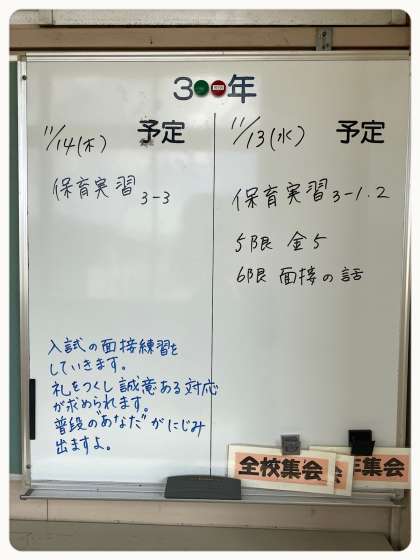 3年
11/14(木) 予定
保育実習 3-3
入試の面接練習を
していきます。
礼をつくし誠意ある対応
が求められます。
普段の"あなた"がにじみ
出ますよ。
11/13(水) 予定
保育実習 3-1.2
5限 金5
6限 面接の話
全校集会
年集会